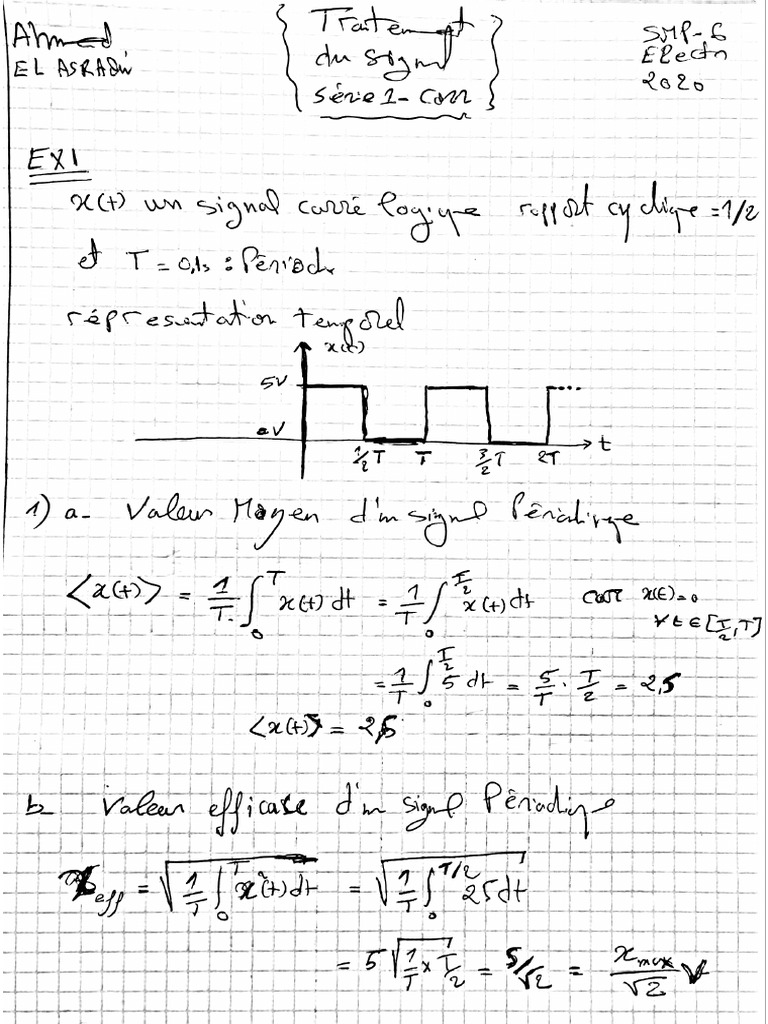 Ahmed
EL ASRAOUI
Traitement
du signal
série 1 - Corr
SMP-6
Electr
2020
EX1
x(t) un signal carré logique rapport cyclique = 1/2
et T = 0,1s : Période
réprésentation temporel
x(t)
5V
0V
1/2 T T 3/2 T 2T t
1) a- Valeur Moyen d'un signal Périodique
<x(t)> = 1/T ∫₀^T x(t) dt = 1/T ∫₀^{T/2} x(t) dt car x(t)=0
∀ t ∈ [T/2, T]
= 1/T ∫₀^{T/2} 5 dt = 5/T · T/2 = 2,5
<x(t)> = 2,5
b Valeur efficase d'un signal Périodique
X_eff = √(1/T ∫₀^T x²(t) dt) = √(1/T ∫₀^{T/2} 25 dt)
= 5 √(1/T × T/2) = 5/√2 = x_max/√2 V